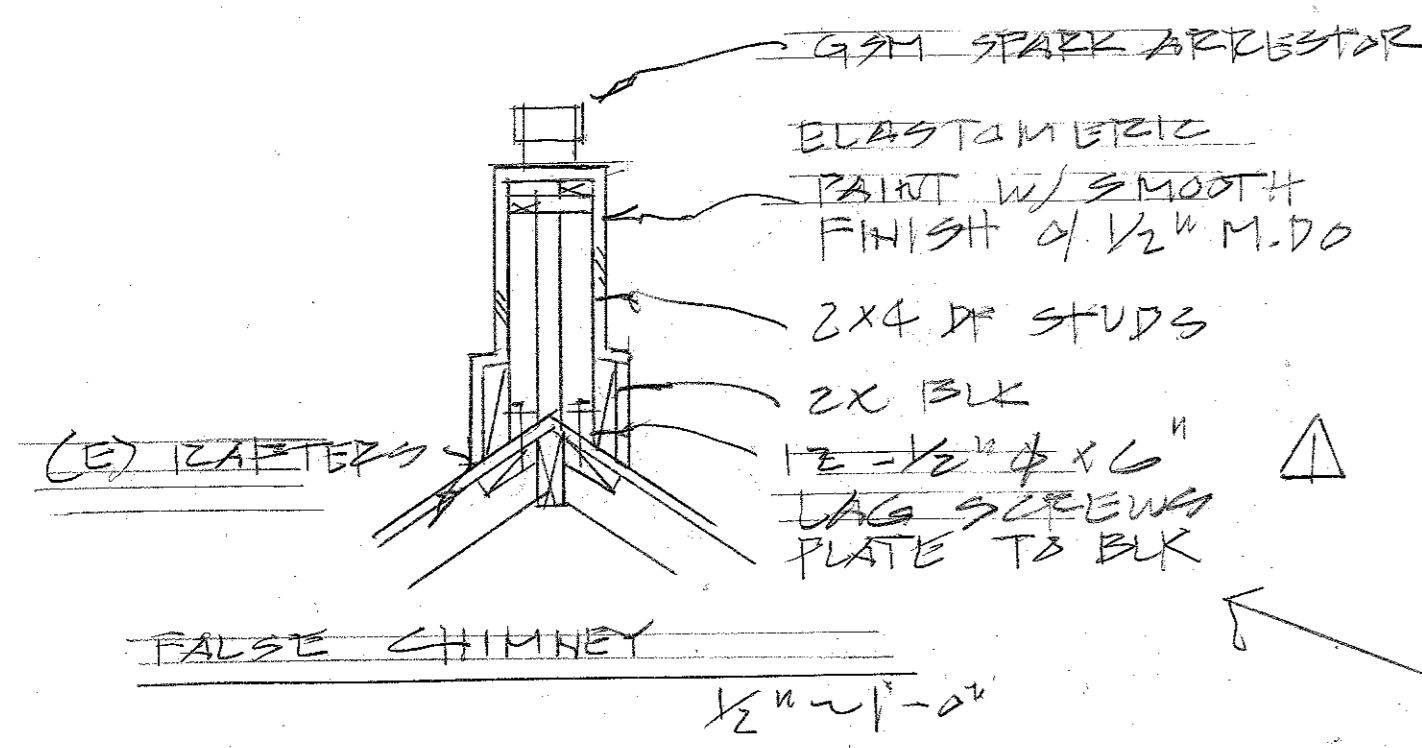 GSM SPARK ARRESTOR
ELASTOMERIC
PAINT W/ SMOOTH
FINISH O/ 1/2" M.DO
2X4 DF STUDS
2X BLK
(E) RAFTERS
12 - 1/2" φ X 6"
LAG SCREWS
PLATE TO BLK
1
FALSE CHIMNEY
1/2" ~ 1'-0"